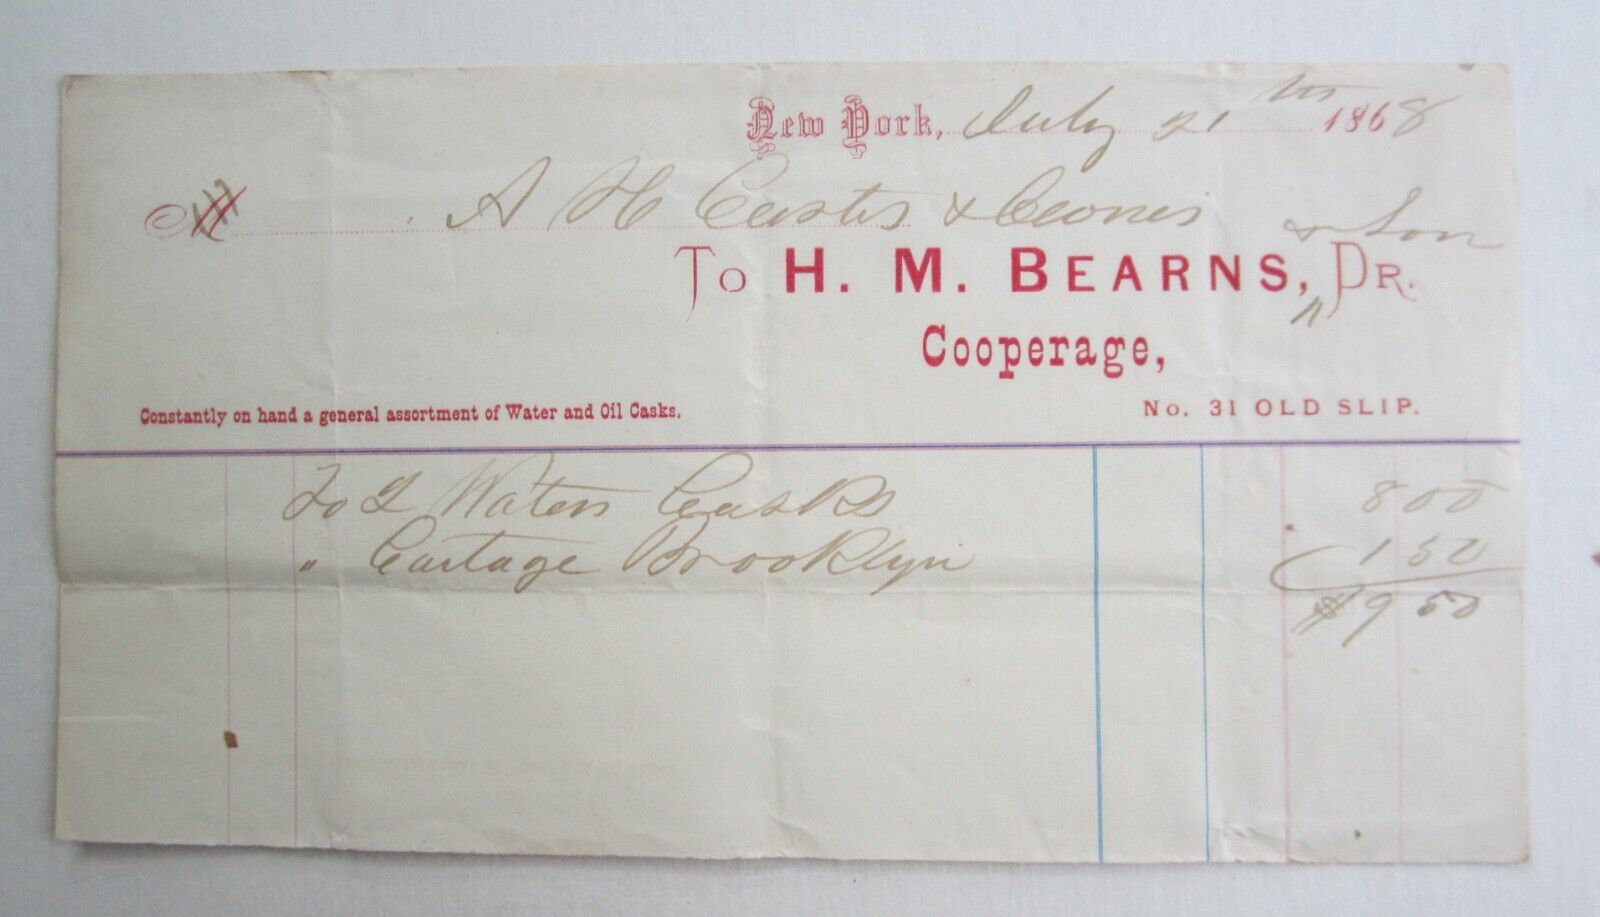 New York, July 21th 1868
M A H & Owners
To H. M. BEARNS, & Son DR.
Cooperage,
Constantly on hand a general assortment of Water and Oil Casks. No. 31 OLD SLIP.
To 2 Water Casks 8 00
" Cartage Brooklyn 1 50
$9 50